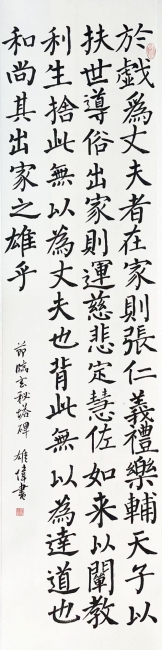 於戲為丈夫者在家則張仁義禮樂輔天子以
扶世導俗出家則運慈悲定慧佐如来以闡教
利生捨此無以為丈夫也背此無以為達道也
和尚其出家之雄乎
節臨玄秘塔碑 雄偉書